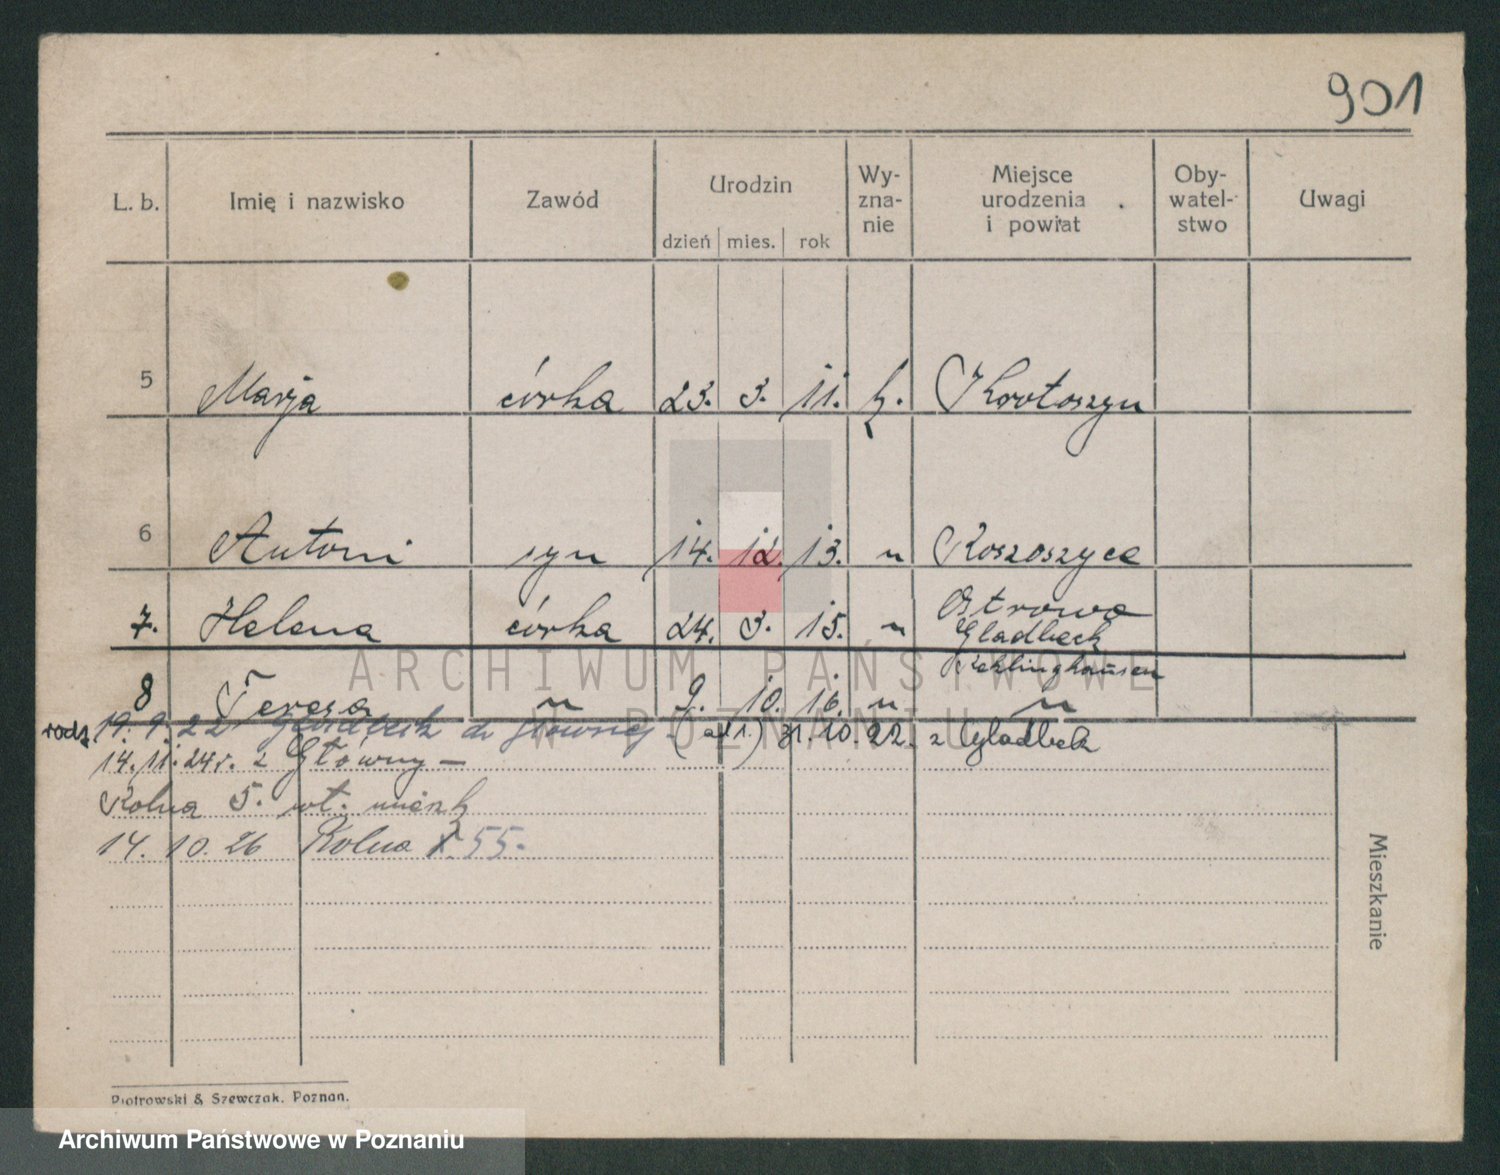 901
L. b. Imię i nazwisko Zawód Urodzin Wy-
zna-
nie Miejsce
urodzenia
i powiat Oby-
watel-
stwo Uwagi
dzień mies. rok
5 Marja córka 23. 3. 11. k. Krotoszyn
6 Antoni syn 14. 12. 13. " Koszoszyce
7. Helena córka 24. 3. 15. " Ostrowo
Gladbeck
Reklinghausen
8 Teresa " 9. 10. 16. " "
rodz. 19. 9. 22 Gladbeck do głównej (ad 1.) 31. 10. 22. z Gladbek
14. 11. 24 r. z Główny —
Rolna 5. wł. mieszk
14. 10. 26 Rolna 55.
Mieszkanie
Piotrowski & Szewczak. Poznan.
ARCHIWUM PAŃSTWOWE
W POZNANIU
Archiwum Państwowe w Poznaniu